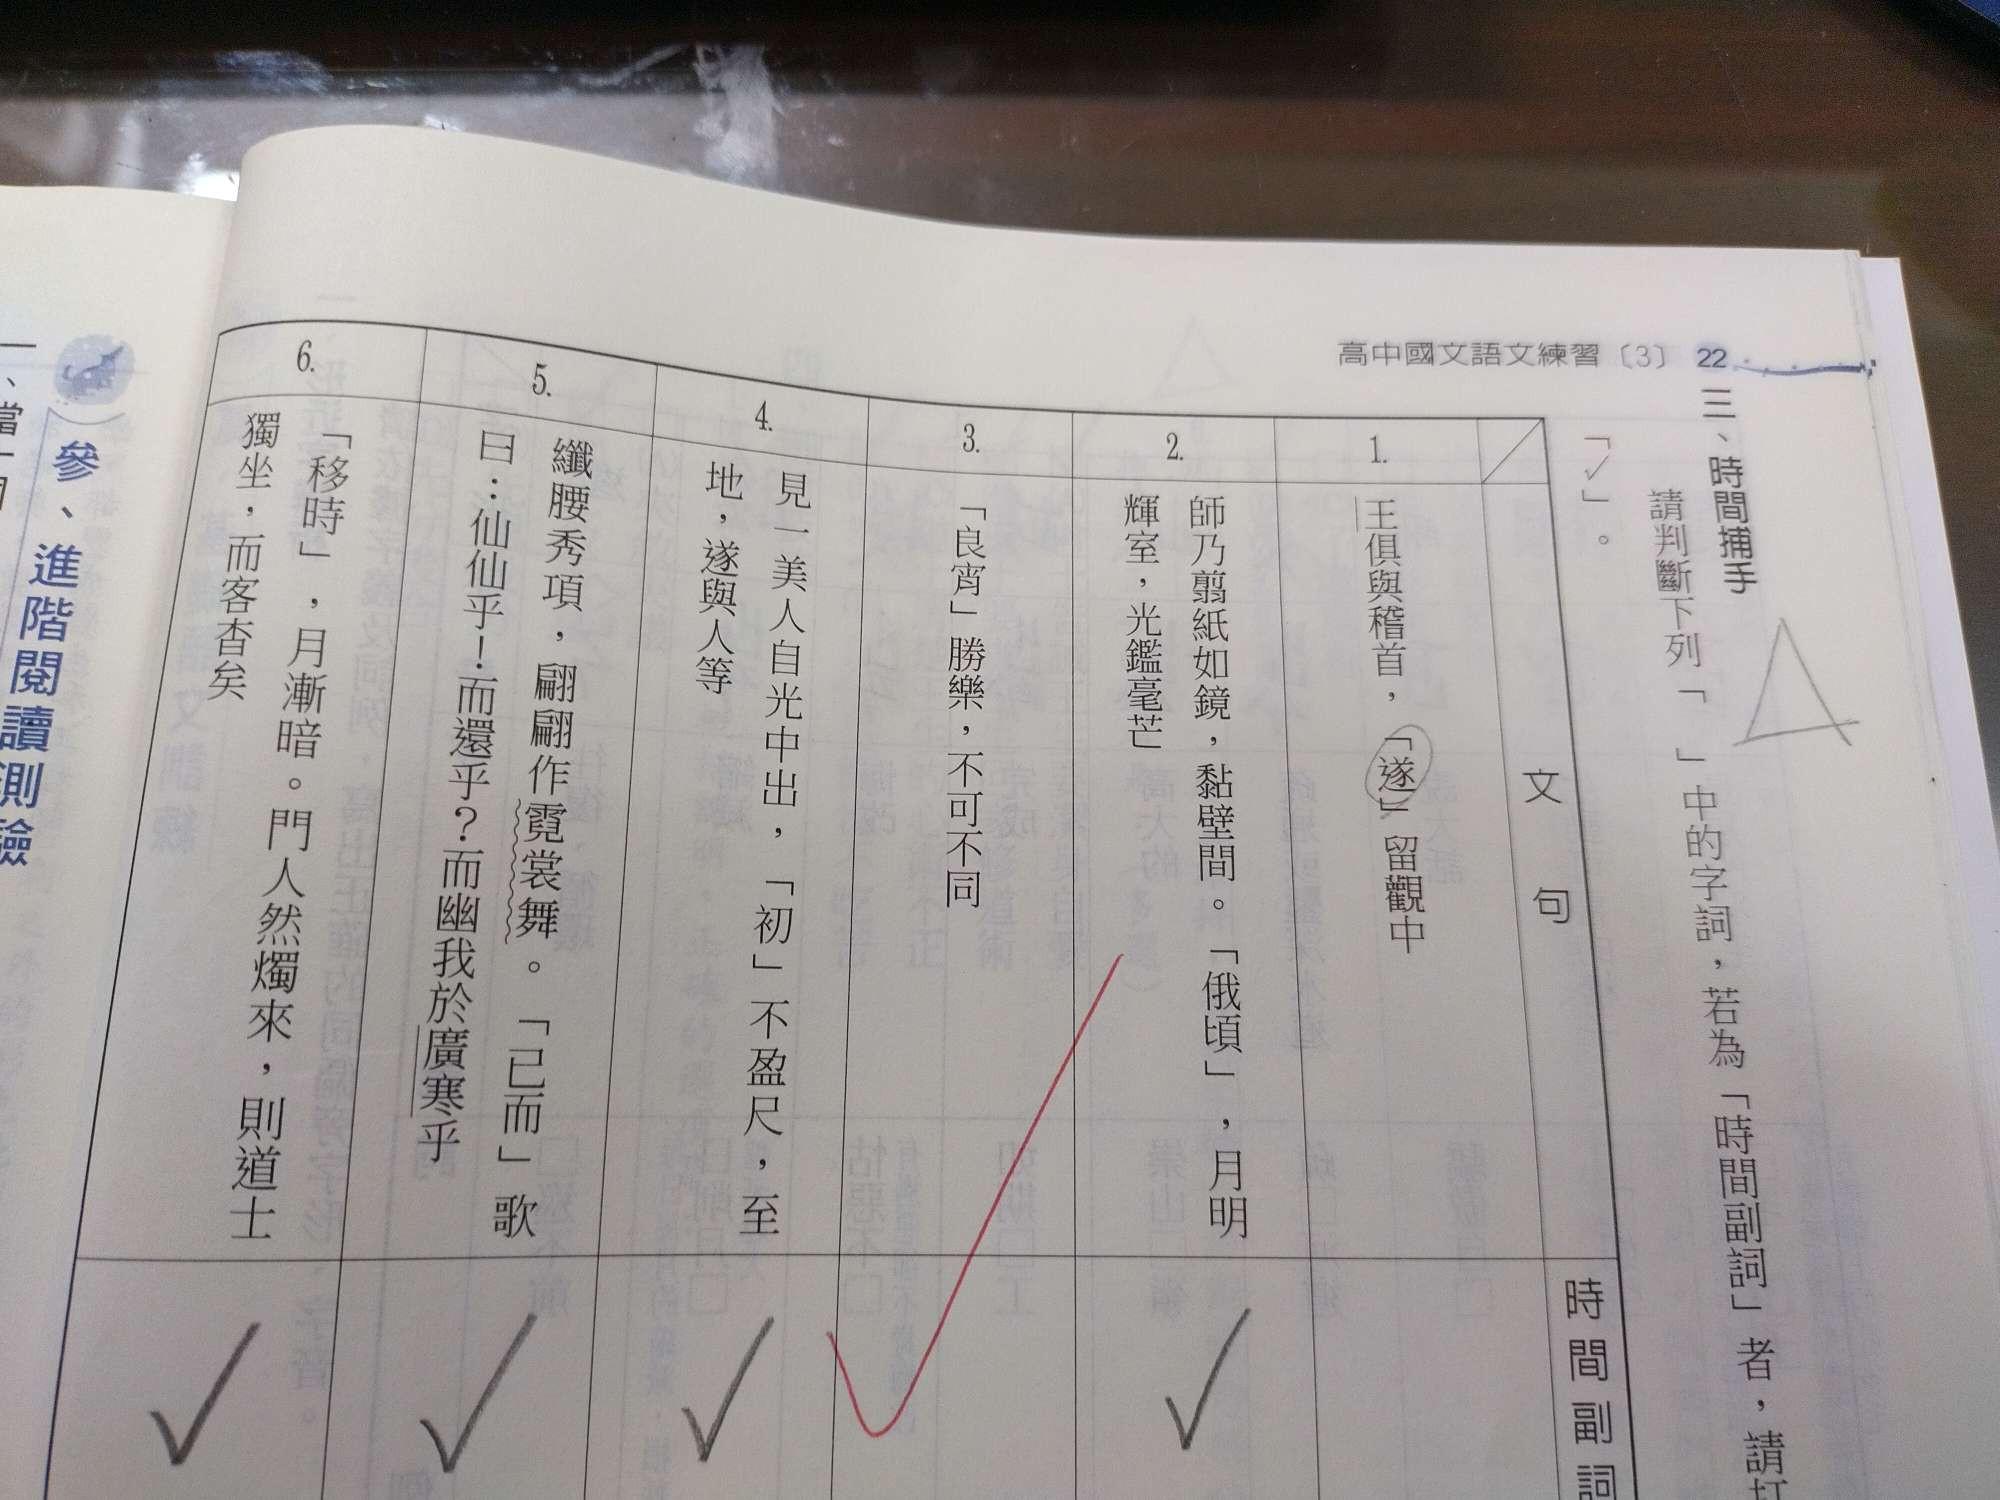 高中國文語文練習〔3〕 22
三、時間捕手
請判斷下列「 」中的字詞，若為「時間副詞」者，請打
「✓」。
文 句
時間副詞
1.
王俱與稽首，「遂」留觀中
2.
師乃翦紙如鏡，黏壁間。「俄頃」，月明
輝室，光鑑毫芒
✓
3.
「良宵」勝樂，不可不同
4.
見一美人自光中出，「初」不盈尺，至
地，遂與人等
✓
5.
纖腰秀項，翩翩作霓裳舞。「已而」歌
曰：仙仙乎！而還乎？而幽我於廣寒乎
✓
6.
「移時」，月漸暗。門人然燭來，則道士
獨坐，而客杳矣
✓
參、進階閱讀測驗
一、當